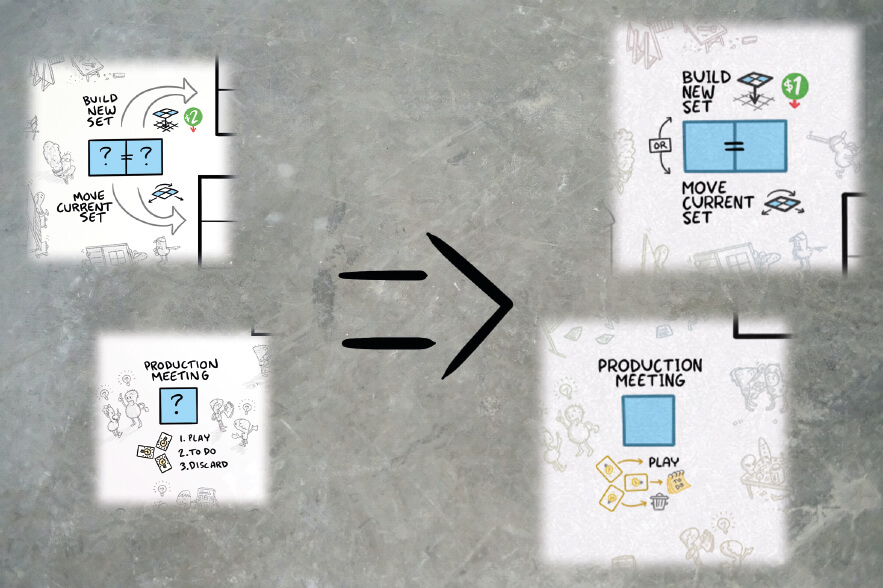 BUILD
NEW
SET
$2
? = ?
MOVE
CURRENT
SET
PRODUCTION
MEETING
?
1. PLAY
2. TO DO
3. DISCARD
BUILD
NEW
SET
$1
OR
=
MOVE
CURRENT
SET
PRODUCTION
MEETING
PLAY
TO
DO